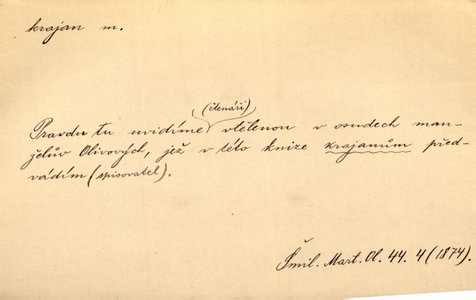 krajan m.
(čtenáři)
Pravdu tu uvidíme vtělenou v osudech man-
želův Olivových, jež v této knize krajanům před-
vádím (spisovatel).
Šmil. Mart. Ol. 44. 4 (1874).